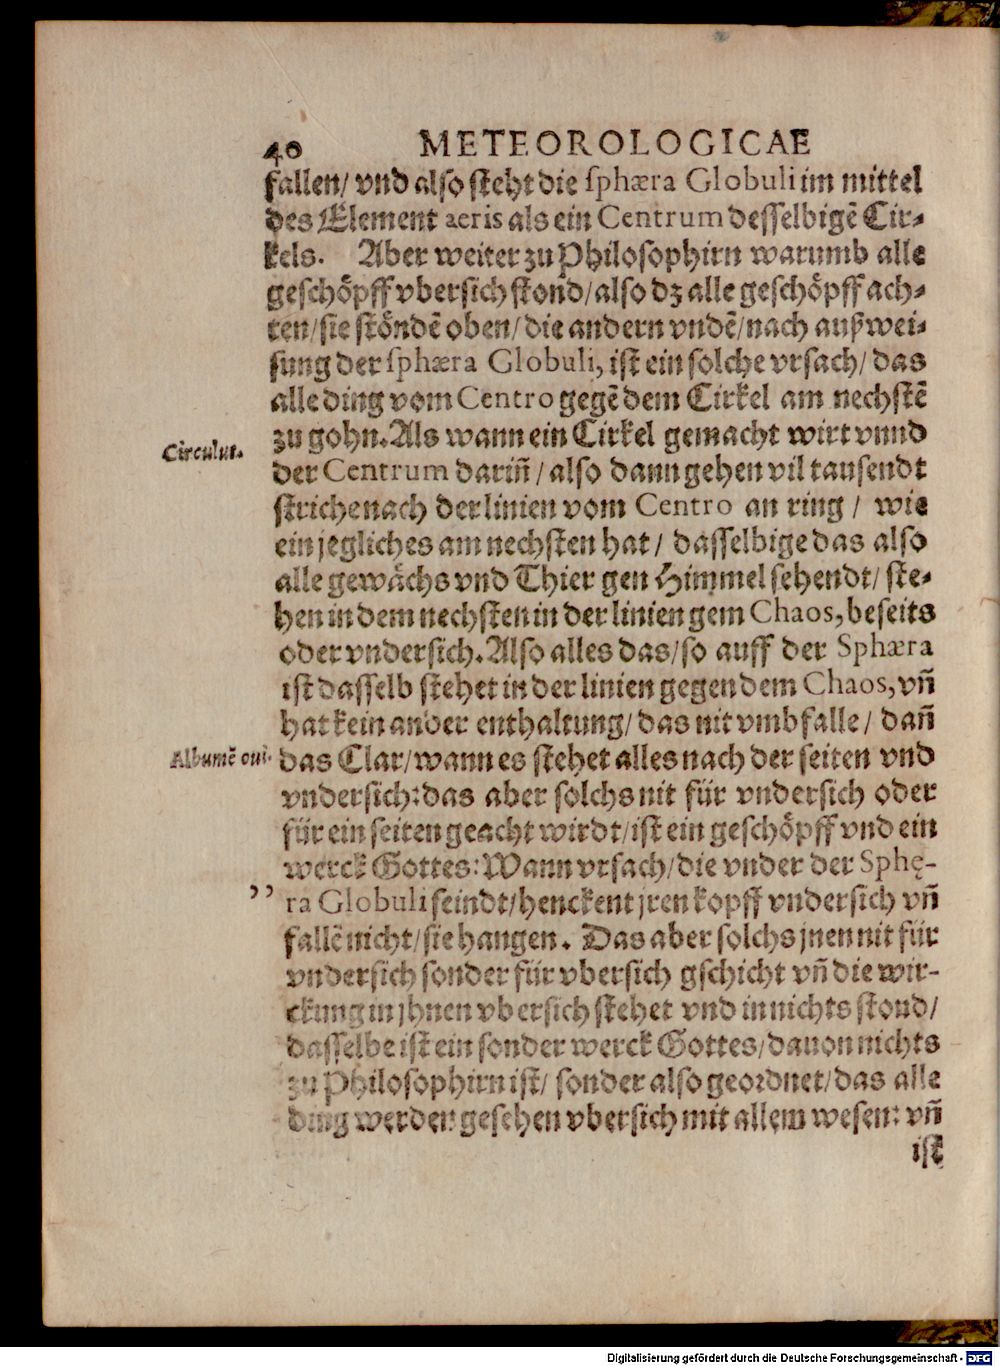 40 METEOROLOGICAE
fallen/ vnd also steht die sphæra Globuli im mittel
des Element aeris als ein Centrum desselbigē Cir⸗
kels. Aber weiter zu Philosophirn warumb alle
geschöpff vbersich stond/also dz alle geschöpff ach⸗
ten/sie stöndē oben/die andern vndē/nach außwei⸗
sung der sphæra Globuli, ist ein solche vrsach/das
alle ding vom Centro gegē dem Cirkel am nechstē
zu gohn. Als wann ein Cirkel gemacht wirt vnnd
Circulus.
der Centrum dariñ/also dann gehen vil tausendt
striche nach der linien vom Centro an ring/ wie
ein jegliches am nechsten hat/ dasselbige das also
alle gewächs vnd Thier gen Himmel sehendt/ ste⸗
hen in dem nechsten in der linien gem Chaos, beseits
oder vndersich. Also alles das/so auff der Sphæra
ist dasselb stehet in der linien gegen dem Chaos, vñ
hat kein ander enthaltung/das nit vmbfalle/ dañ
Albumē oui.
das Clar/wann es stehet alles nach der seiten vnd
vndersich:das aber solchs nit für vndersich oder
für ein seiten geacht wirdt/ist ein geschöpff vnd ein
werck Gottes: Wann vrsach/die vnder der Sphę-
,, ra Globuli seindt/henckent jren kopff vndersich vñ
fallē nicht/sie hangen. Das aber solchs jnen nit für
vndersich sonder für vbersich gschicht vñ die wir-
ckung in jhnen vbersich stehet vnd in nichts stond/
dasselbe ist ein sonder werck Gottes/dauon nichts
zu Philosophirn ist/ sonder also geordnet/das alle
ding werden gesehen vbersich mit allem wesen: vñ
ist
Digitalisierung gefördert durch die Deutsche Forschungsgemeinschaft - DFG